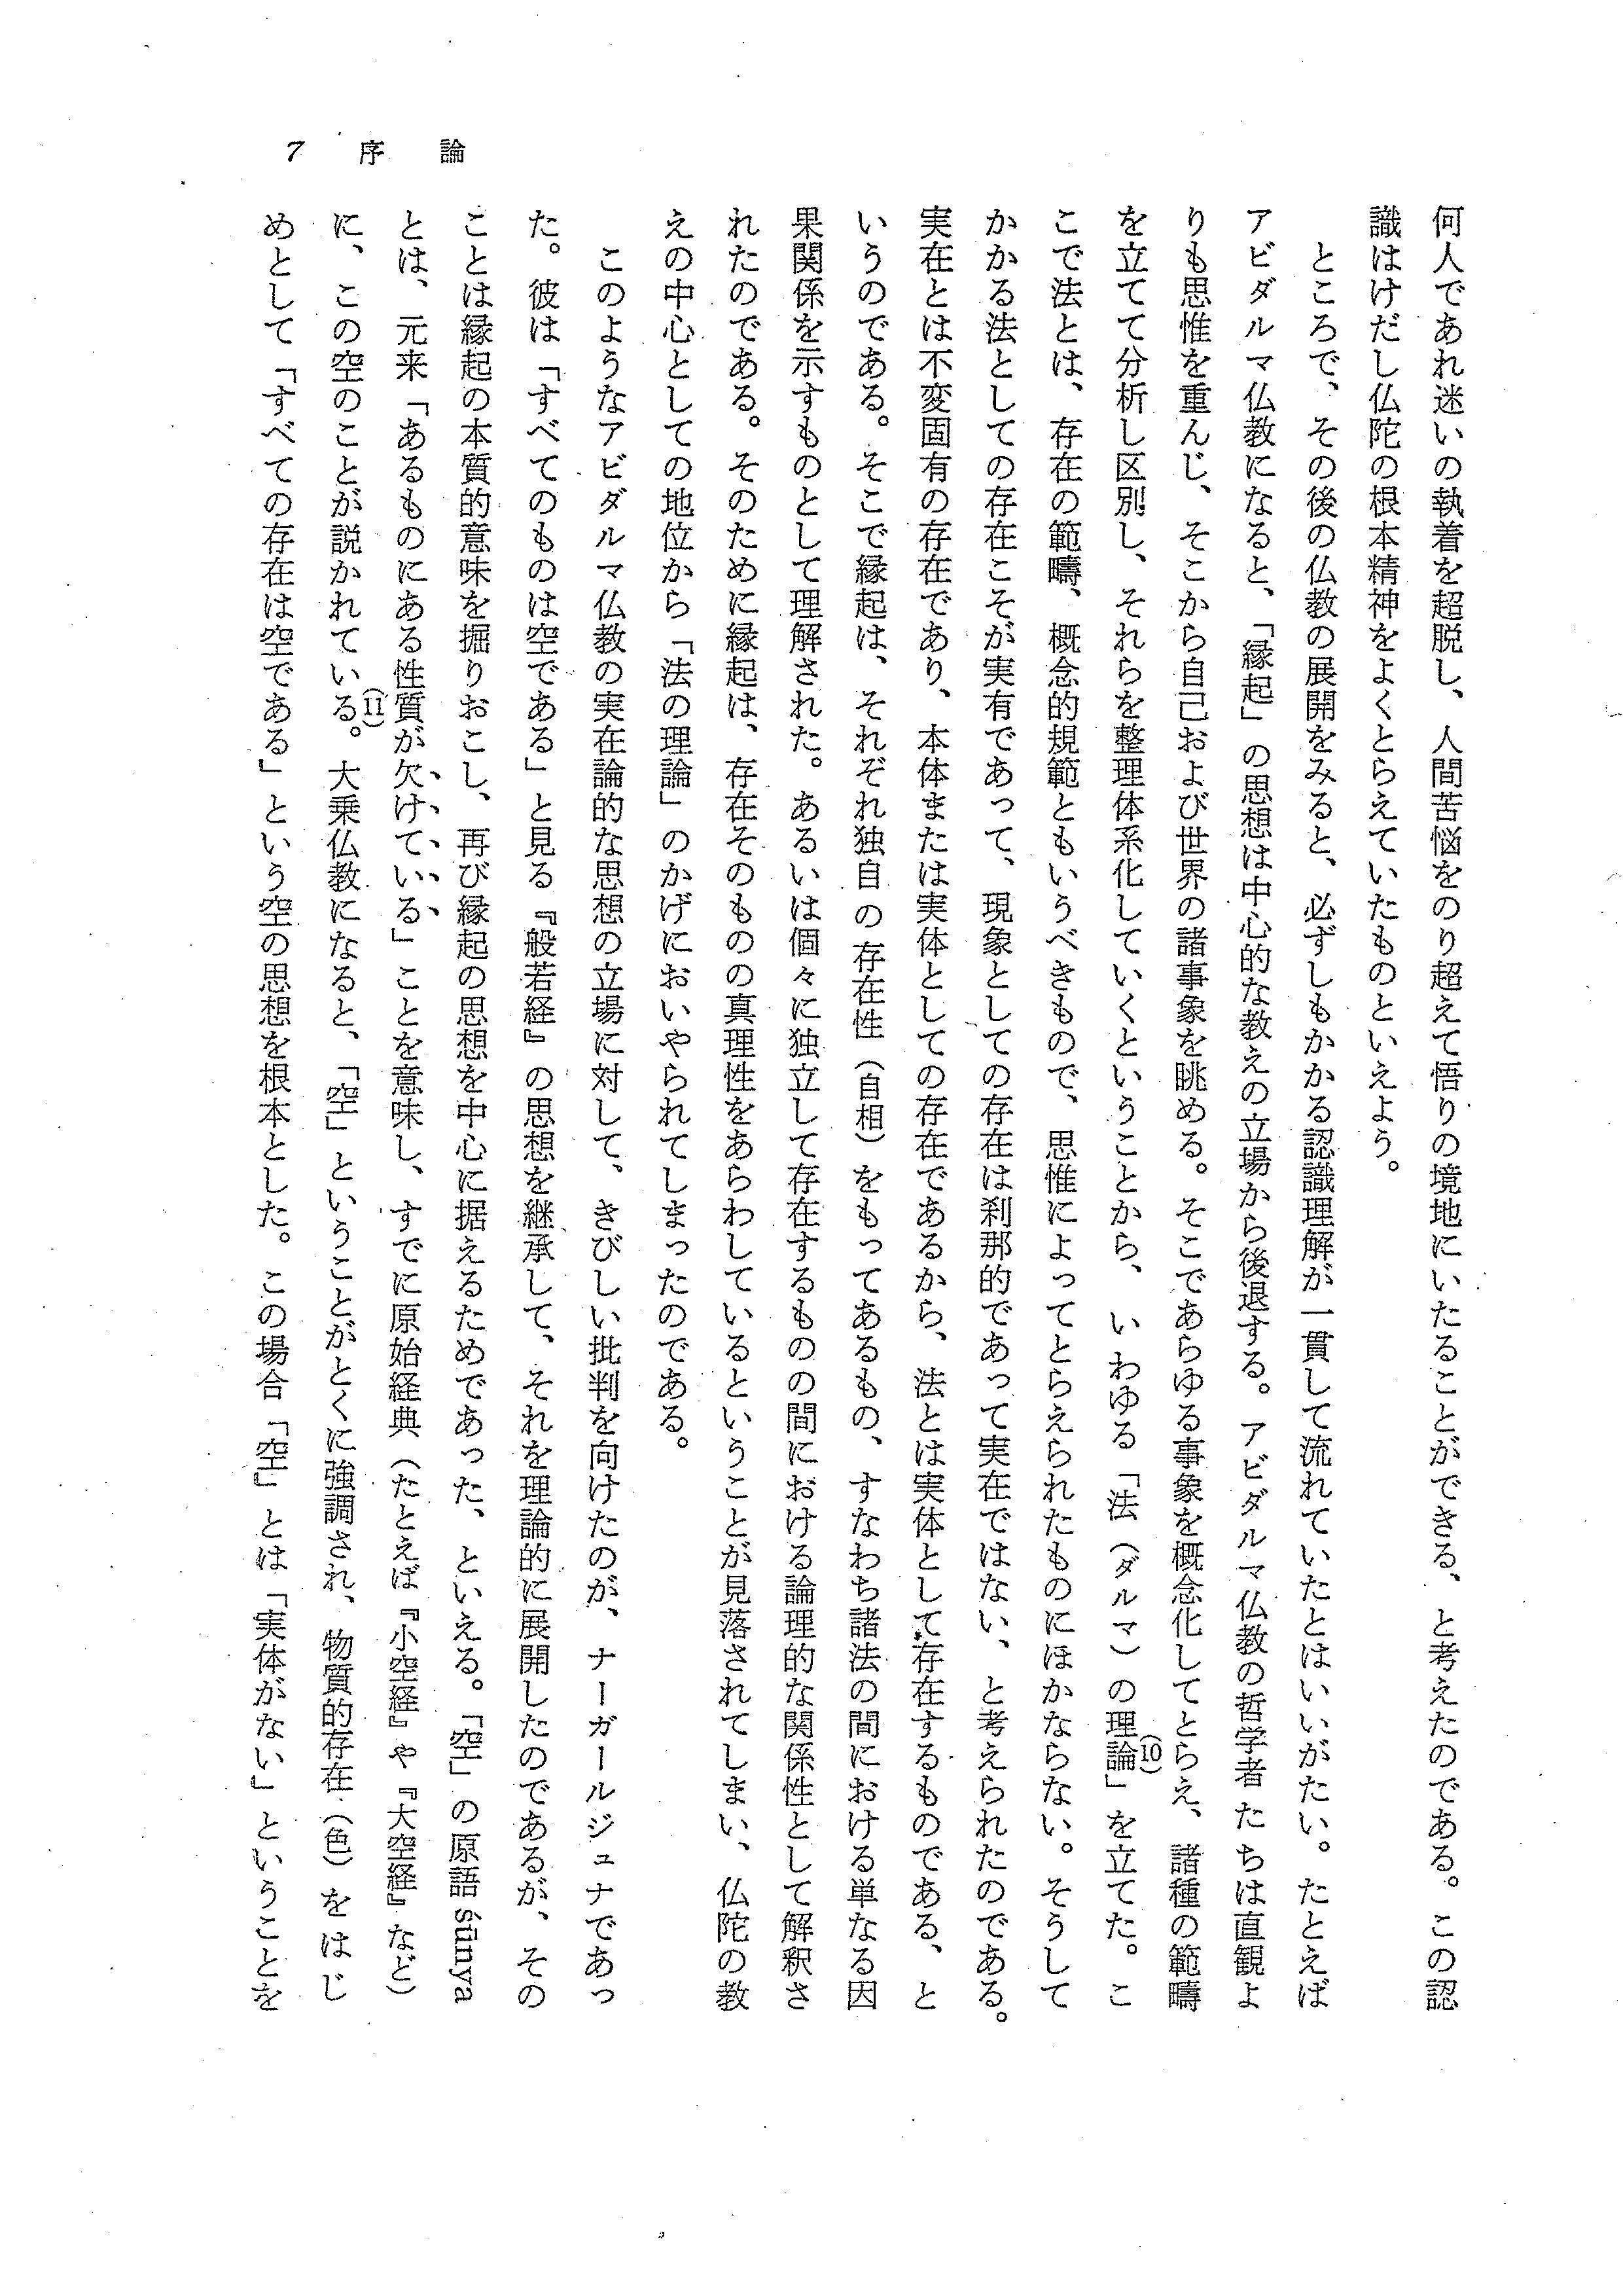 7 序論
何人であれ迷いの執着を超脱し、人間苦悩をのり超えて悟りの境地にいたることができる、と考えたのである。この認
識はけだし仏陀の根本精神をよくとらえていたものといえよう。
ところで、その後の仏教の展開をみると、必ずしもかかる認識理解が一貫して流れていたとはいいがたい。たとえば
アビダルマ仏教になると、「縁起」の思想は中心的な教えの立場から後退する。アビダルマ仏教の哲学者たちは直観よ
りも思惟を重んじ、そこから自己および世界の諸事象を眺める。そこであらゆる事象を概念化してとらえ、諸種の範疇
を立てて分析し区別し、それらを整理体系化していくということから、いわゆる「法（ダルマ）の理論(10)」を立てた。こ
こで法とは、存在の範疇、概念的規範ともいうべきもので、思惟によってとらえられたものにほかならない。そうして
かかる法としての存在こそが実有であって、現象としての存在は刹那的であって実在ではない、と考えられたのである。
実在とは不変固有の存在であり、本体または実体としての存在であるから、法とは実体として存在するものである、と
いうのである。そこで縁起は、それぞれ独自の存在性（自相）をもってあるもの、すなわち諸法の間における単なる因
果関係を示すものとして理解された。あるいは個々に独立して存在するものの間における論理的な関係性として解釈さ
れたのである。そのために縁起は、存在そのものの真理性をあらわしているということが見落されてしまい、仏陀の教
えの中心としての地位から「法の理論」のかげにおいやられてしまったのである。
このようなアビダルマ仏教の実在論的な思想の立場に対して、きびしい批判を向けたのが、ナーガールジュナであっ
た。彼は「すべてのものは空である」と見る『般若経』の思想を継承して、それを理論的に展開したのであるが、その
ことは縁起の本質的意味を掘りおこし、再び縁起の思想を中心に据えるためであった、といえる。「空」の原語 śūnya
とは、元来「あるものにある性質が欠けている」ことを意味し、すでに原始経典（たとえば『小空経』や『大空経』など）
に、この空のことが説かれている(11)。大乗仏教になると、「空」ということがとくに強調され、物質的存在（色）をはじ
めとして「すべての存在は空である」という空の思想を根本とした。この場合「空」とは「実体がない」ということを